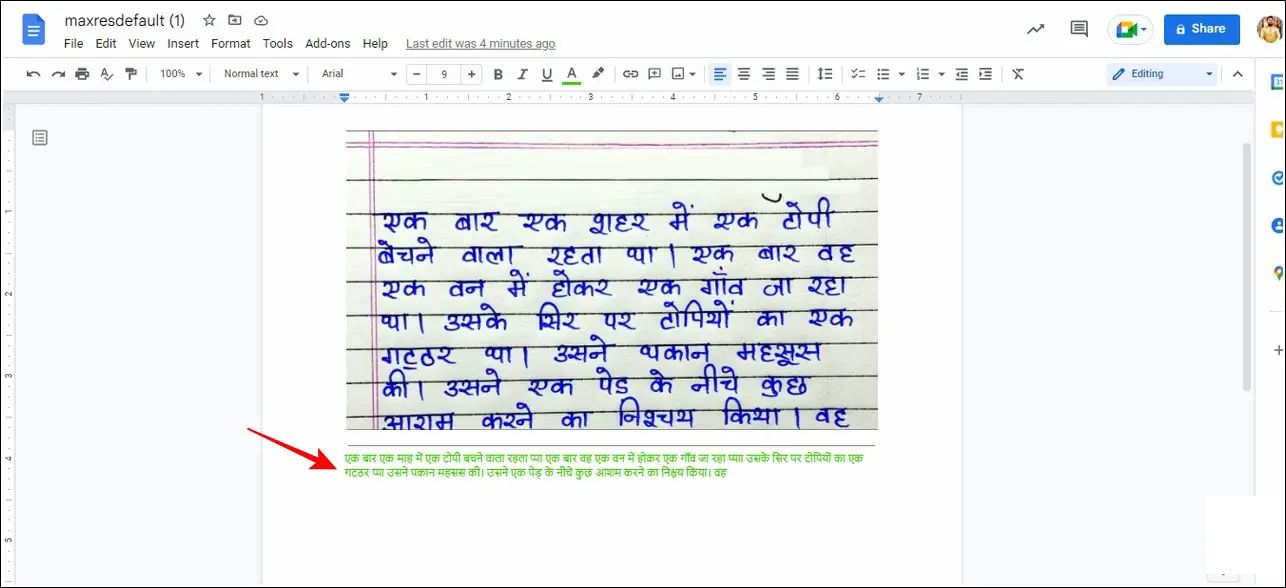 maxresdefault (1)
File Edit View Insert Format Tools Add-ons Help Last edit was 4 minutes ago
Share
100% Normal text Arial 9 B I U A Editing
1 1 2 3 4 5 6 7
एक बार एक शहर में एक टोपी
बेचने वाला रहता था। एक बार वह
एक वन में होकर एक गाँव जा रहा
था। उसके सिर पर टोपियों का एक
गट्ठर था। उसने थकान महसूस
की। उसने एक पेड के नीचे कुछ
आराम करने का निश्चय किया। वह
एक बार एक माह में एक टोपी बचने वाला रहता प्या एक बार वह एक वन में होकर एक गाँव जा रहा प्याा उसके सिर पर टोपियों का एक
गटठर प्या उसने पकान महसस की। उसने एक पेड़ के नीचे कुछ आशम करने का निश्चय किया। वह
1
2
3
4
5
31